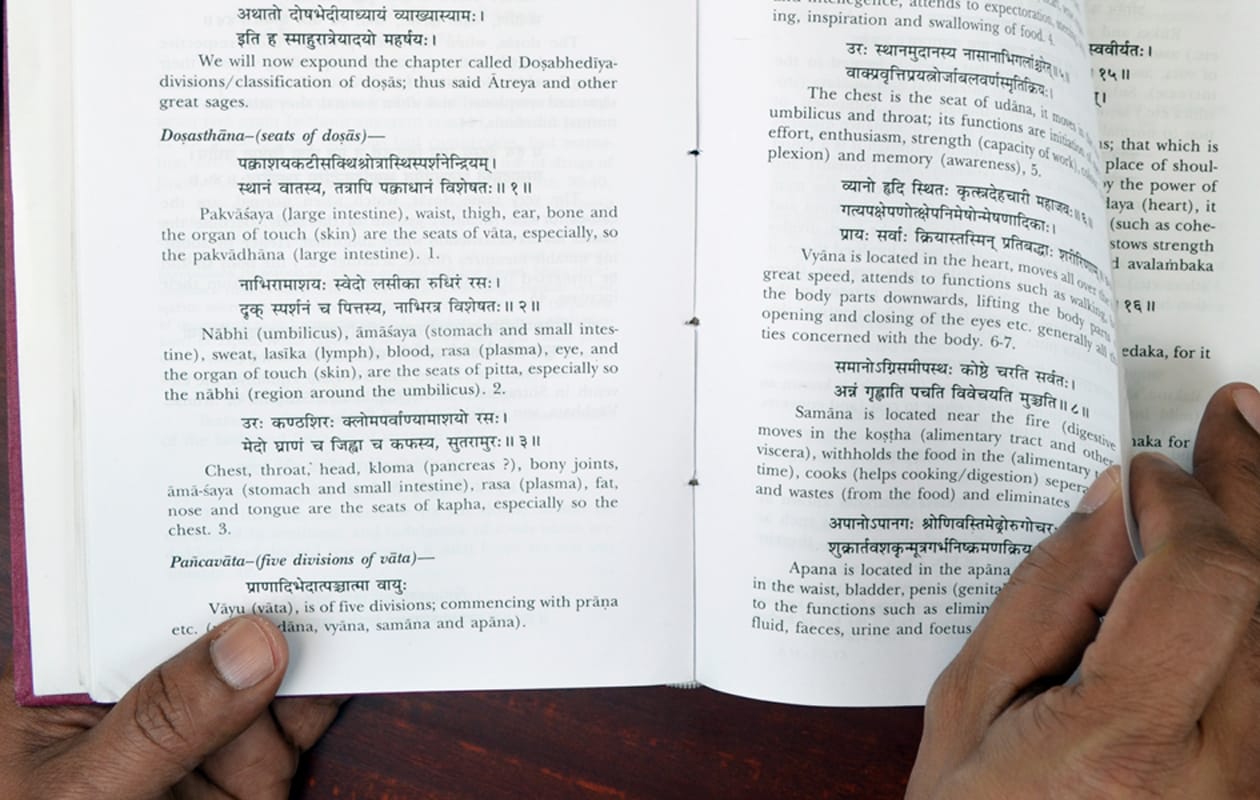 अथातो दोषभेदीयाध्यायं व्याख्यास्यामः।
इति ह स्माहुरात्रेयादयो महर्षयः।
We will now expound the chapter called Doṣabhedīya-
divisions/classification of doṣās; thus said Ātreya and other
great sages.
Doṣasthāna–(seats of doṣās)—
पक्वाशयकटीसक्थिश्रोत्रास्थिस्पर्शनेन्द्रियम्।
स्थानं वातस्य, तत्रापि पक्वाधानं विशेषतः॥१॥
Pakvāśaya (large intestine), waist, thigh, ear, bone and
the organ of touch (skin) are the seats of vāta, especially, so
the pakvādhāna (large intestine). 1.
नाभिरामाशयः स्वेदो लसीका रुधिरं रसः।
दृक् स्पर्शनं च पित्तस्य, नाभिरत्र विशेषतः॥२॥
Nābhi (umbilicus), āmāśaya (stomach and small intes-
tine), sweat, lasīka (lymph), blood, rasa (plasma), eye, and
the organ of touch (skin), are the seats of pitta, especially so
the nābhi (region around the umbilicus). 2.
उरः कण्ठशिरः क्लोमपर्वाण्यामाशयो रसः।
मेदो घ्राणं च जिह्वा च कफस्य, सुतरामुरः॥३॥
Chest, throat, head, kloma (pancreas ?), bony joints,
āmā-śaya (stomach and small intestine), rasa (plasma), fat,
nose and tongue are the seats of kapha, especially so the
chest. 3.
Pañcavāta–(five divisions of vāta)—
प्राणादिभेदात्पञ्चात्मा वायुः
Vāyu (vāta), is of five divisions; commencing with prāṇa
etc. dāna, vyāna, samāna and apāna).
attends to expectoration,
ing, inspiration and swallowing of food. 4.
उरः स्थानमुदानस्य नासानाभिगलांश्चरेत्॥५॥
वाक्प्रवृत्तिप्रयत्नोर्जाबलवर्णस्मृतिक्रियः।
The chest is the seat of udāna, it moves in the
umbilicus and throat; its functions are initiation of
effort, enthusiasm, strength (capacity of work),
plexion) and memory (awareness), 5.
व्यानो हृदि स्थितः कृत्स्नदेहचारी महाजवः॥६॥
गत्यपक्षेपणोत्क्षेपनिमेषोन्मेषणादिकाः।
प्रायः सर्वाः क्रियास्तस्मिन् प्रतिबद्धाः शरीरिणाम्
Vyāna is located in the heart, moves all over the
great speed, attends to functions such as walking,
the body parts downwards, lifting the body parts
opening and closing of the eyes etc. generally all
ties concerned with the body. 6-7.
समानोऽग्निसमीपस्थः कोष्ठे चरति सर्वतः।
अन्नं गृह्णाति पचति विवेचयति मुञ्चति॥८॥
Samāna is located near the fire (digestive
moves in the koṣṭha (alimentary tract and other
viscera), withholds the food in the (alimentary
time), cooks (helps cooking/digestion) sepera
and wastes (from the food) and eliminates
अपानोऽपानगः श्रोणिवस्तिमेढ्रोरुगोचरः
शुक्रार्तवशकृन्मूत्रगर्भनिष्क्रमणक्रिय
Apana is located in the apāna
in the waist, bladder, penis (genita
to the functions such as elimin
fluid, faeces, urine and foetus
स्ववीर्यतः।
१५॥
that which is
place of shoul-
the power of
(heart), it
(such as cohe-
stows strength
avalaṁbaka
१६॥
edaka, for it
naka for